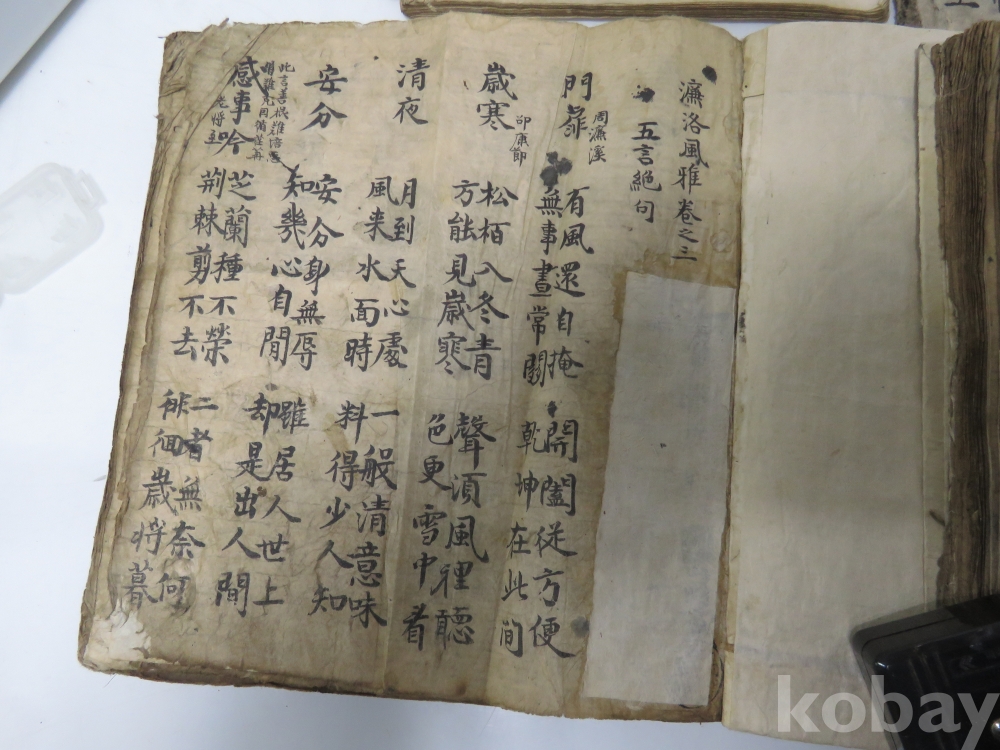 濂洛風雅卷之三
五言絶句
門扉
周濂溪
有風還自掩
無事晝常關
開闔從方便
乾坤在此間
歲寒
邵康節
松栢入冬青
方能見歲寒
聲須風裡聽
色更雪中看
清夜
月到天心處
風来水面時
一般清意味
料得少人知
安分
安分身無辱
知幾心自閒
雖居人世上
却是出人間
感事吟
此言善根難培惡
芝蘭種不榮
荊棘剪不去
二者無奈何
徘徊歲將暮
kobay